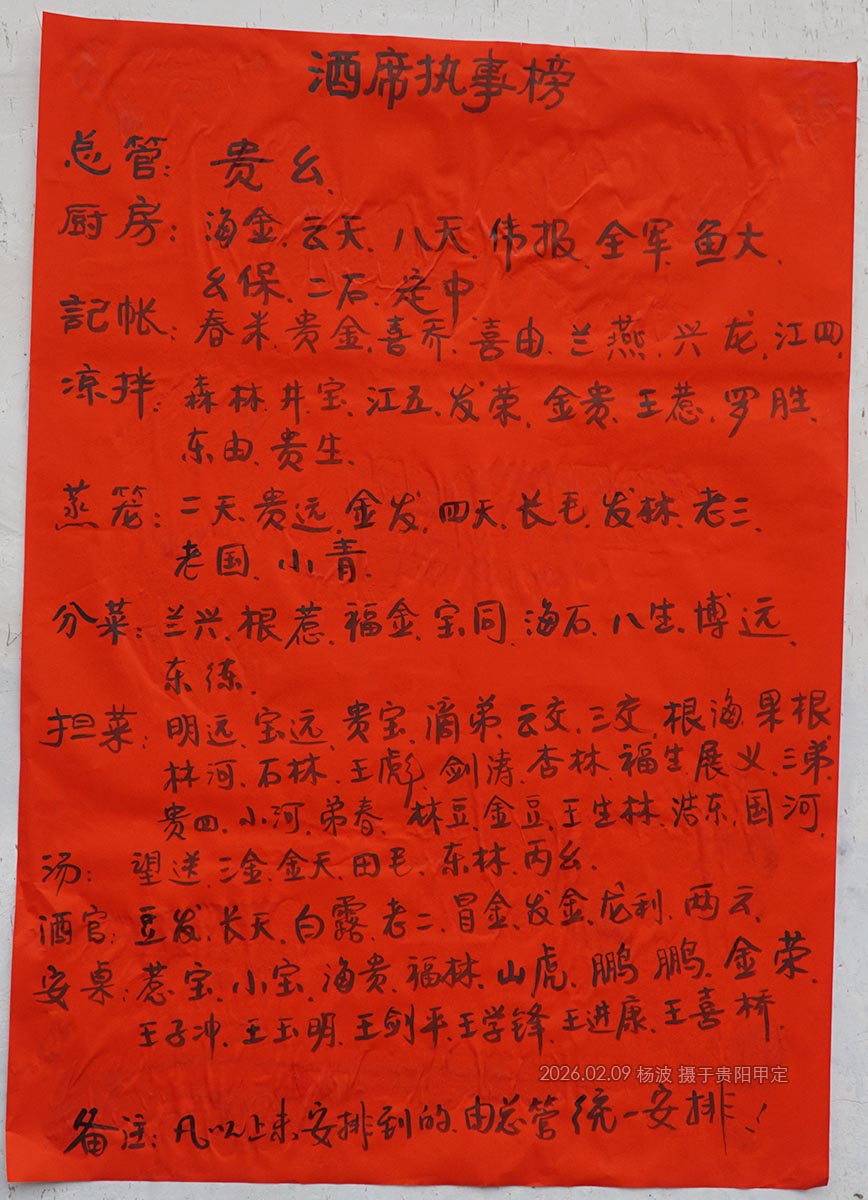 酒席执事榜
总管：贵幺、
厨房：海金、云天、八天、伟报、全军、鱼大、
幺保、二石、定中
記帐：春米、贵金、喜乔、喜由、兰燕、兴龙、江四、
凉拌：森林、井宝、江五、发荣、金贵、王惹、罗胜、
东由、贵生、
蒸笼：二天、贵远、金发、四天、长毛、发林、老三、
老国、小青、
分菜：兰兴、根惹、福金、宝同、海石、八生、博远、
东练、
担菜：明远、宝远、贵宝、滴弟、云交、三交、根海、果根、
林河、石林、王彪、剑涛、杏林、福生、展义、三弟、
贵四、小河、弟春、林豆、金豆、王生林、浩东、国河、
汤：望送、三金、金天、田毛、东林、丙幺、
酒官：豆发、长天、白露、老二、冒金、发金、龙利、两云、
安桌：惹宝、小宝、海贵、福林、山虎、鹏鹏、金荣、
王子冲、王玉明、王剑平、王学锋、王进康、王喜桥、
2026.02.09 杨波 摄于贵阳甲定
备注：凡以上未安排到的、由总管统一安排！